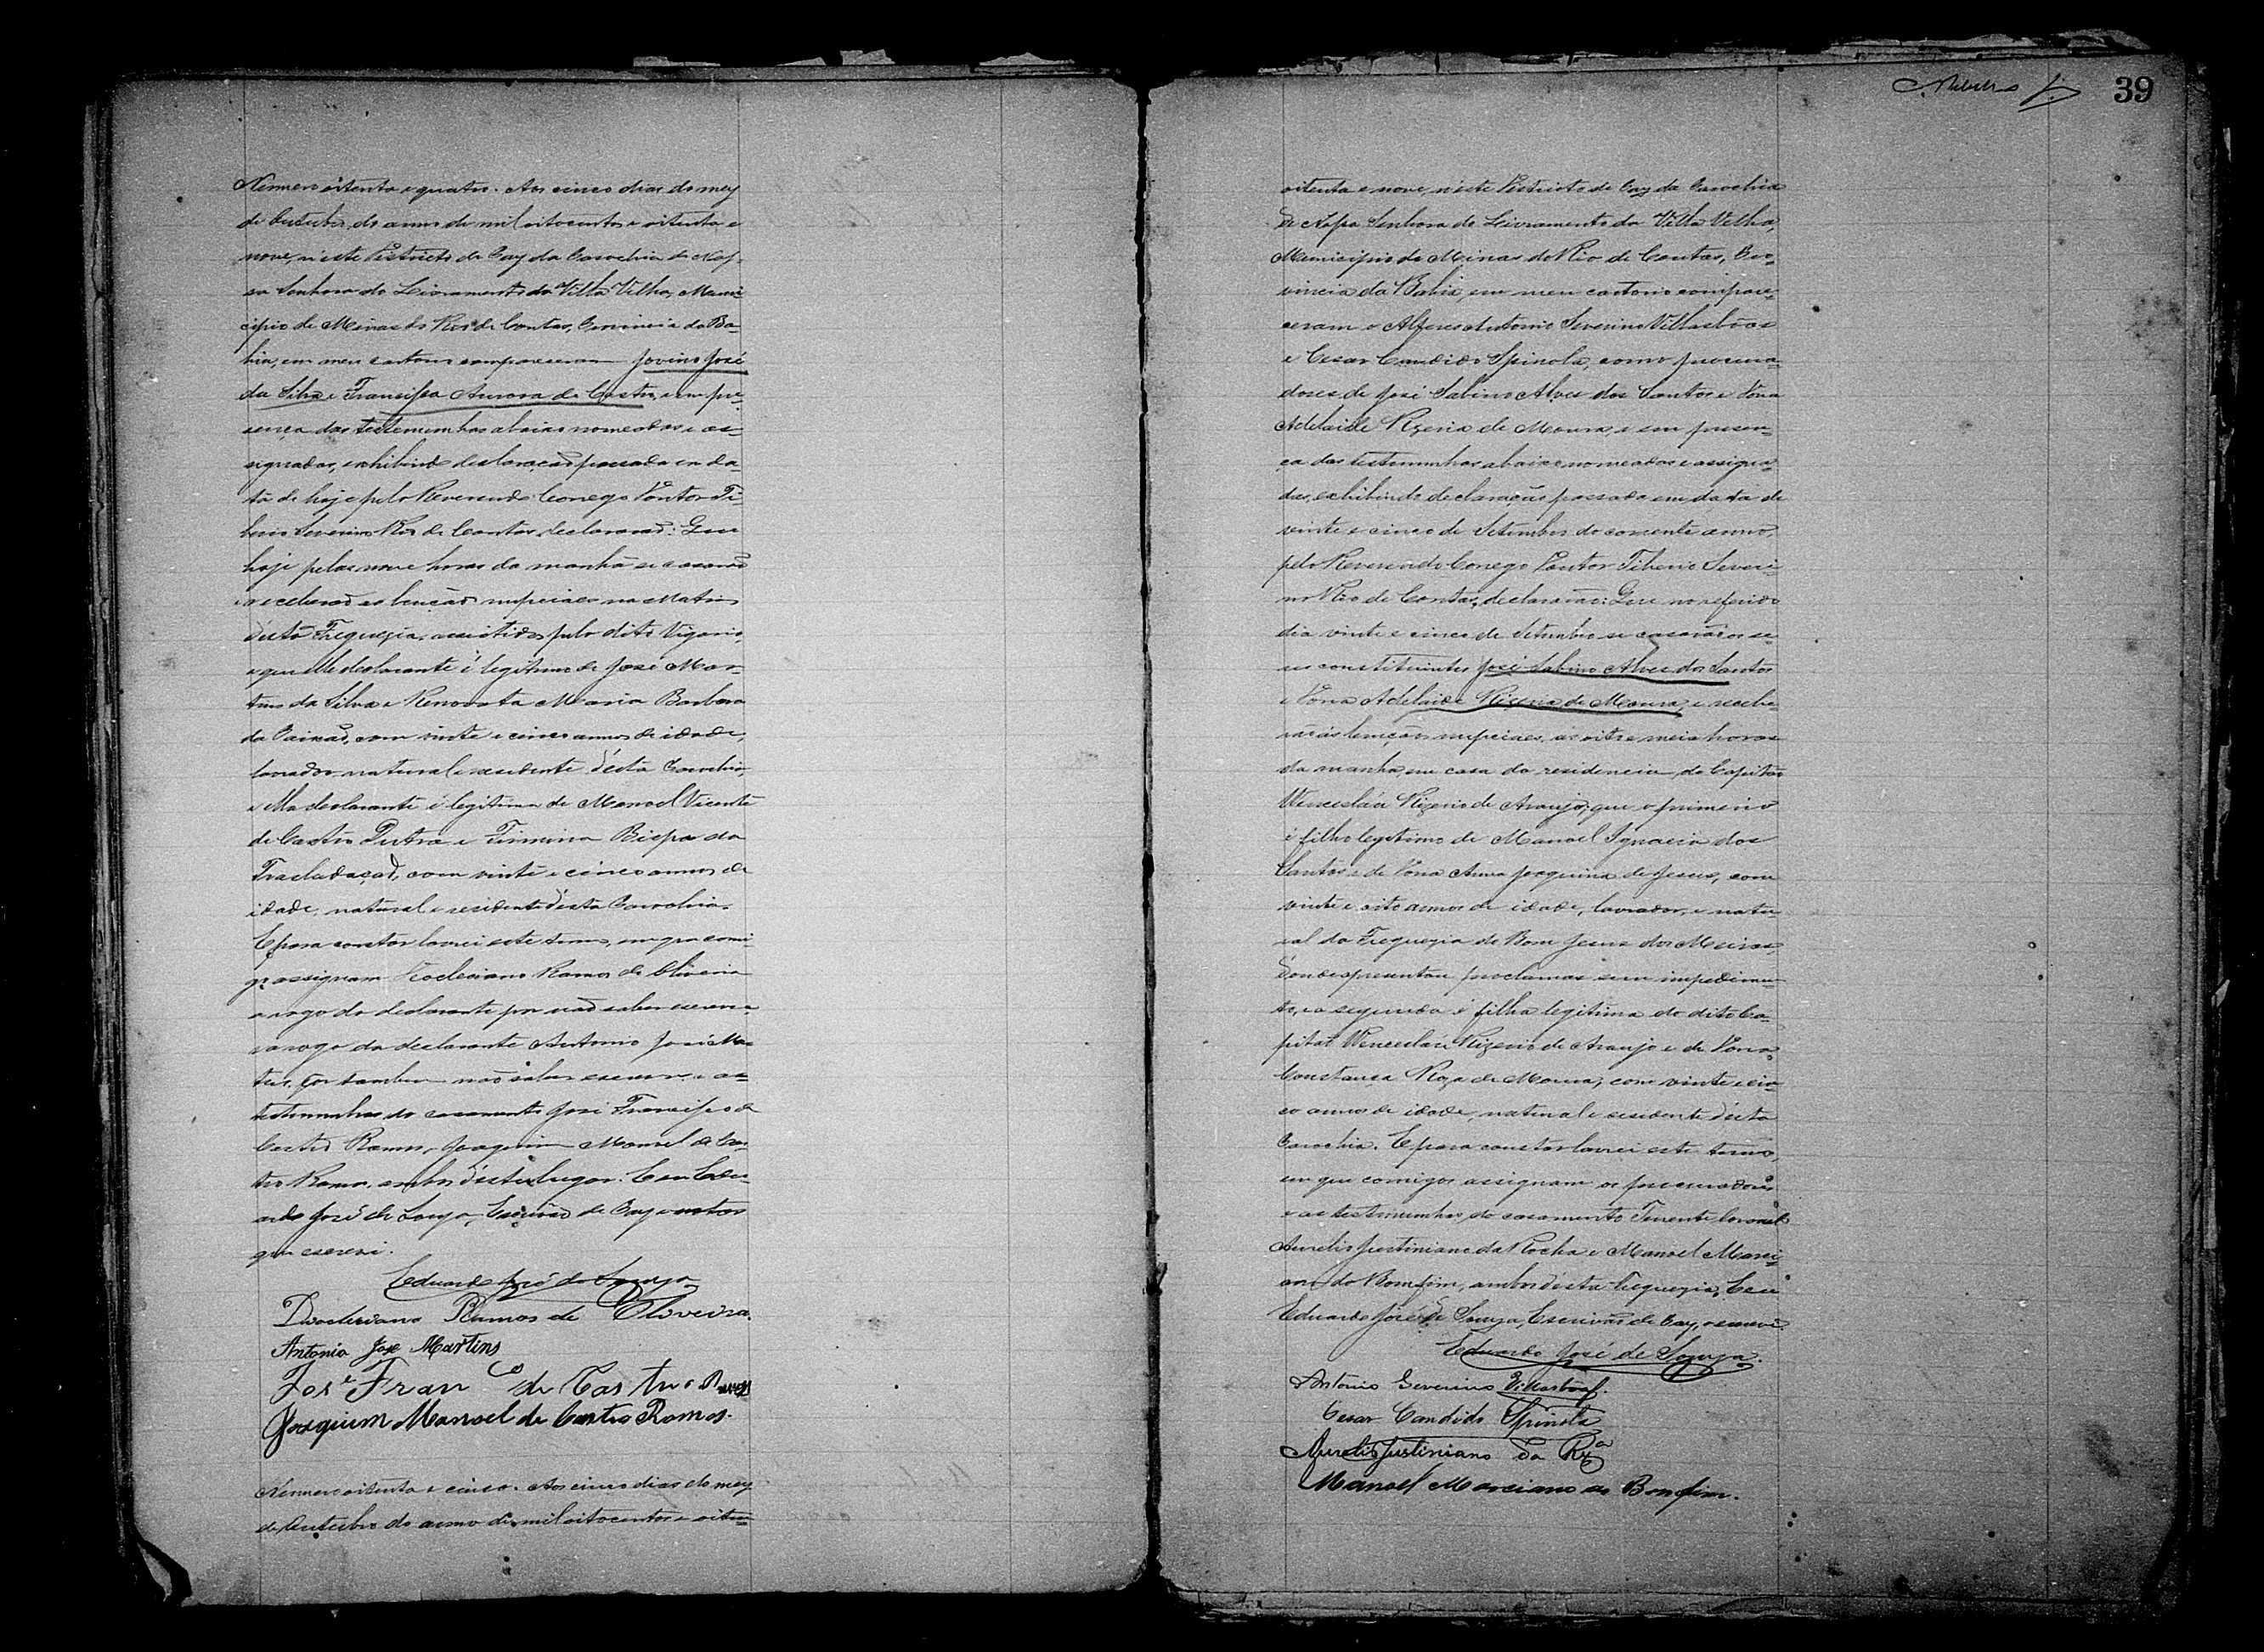 Numero oitenta e quatro. Aos cinco dias do mez
de Outubro do anno de mil oitocentos e oitenta e
nove, n'este Districto de Paz da Parochia de Nos-
sa Senhora do Livramento da Villa Velha, Muni-
cipio de Minas do Rio de Contas, Provincia da Ba-
hia, em meu cartorio compareceram Jovino José
da Silva e Francisca Aurora de Castro, e em pre-
sença das testemunhas abaixo nomeadas e as-
signadas, exhibindo declaração passada em da-
ta de hoje pelo Reverendo Conego Doutor Ti-
berio Severino Rio de Contas, declararaõ: Que
hoje pelas nove horas da manhã se casaraõ
e receberaõ as bençaõs nupciaes na Matriz
d'esta Freguezia, assistidos pelo dito Vigario,
e que elle declarante é legitimo de José Mar-
tins da Silva e Renovata Maria Barbosa
da Paixaõ, com vinte e cinco annos de idade,
lavrador, natural e residente d'esta Parochia,
e ella declarante é legitima de Manoel Vicente
de Castro Dutra e Firmina Bispa da
Trasladaçaõ, com vinte e cinco annos de
idade, natural e residente d'esta Parochia.
E para constar lavrei este termo, em que comi-
go assignam Diocleciano Ramos de Oliveira
a rogo do declarante por naõ saber escrever
e a rogo da declarante Antonio José Mar-
tins, por tambem naõ saber escrever, e as
testemunhas do casamento José Francisco de
Castro Ramos, Joaquim Manoel de Cas-
tro Ramos, ambos d'este lugar. E eu Edu-
ardo José de Souza, Escrivaõ de Paz
que escrevi.
Eduardo José de Souza
Diocleciano Ramos de Oliveira.
Antonio Jose Martins
José Fran co de Castro Ramos
Joaquim Manoel de Castro Ramos.
Numero oitenta e cinco. Aos cinco dias do mez
de Outubro do anno de mil oitocentos e oiten-
39
oitenta e nove, n'este Districto de Paz da Parochia
de Nossa Senhora do Livramento da Villa Velha,
Municipio de Minas do Rio de Contas, Pro-
vincia da Bahia, em meu cartorio compare-
ceram o Alferes Antonio Severino Villasbôas
e Cesar Candido Spinola, como procura-
dores de José Sabino Alves dos Santos e Dona
Adelaide Rizeria de Moura, e em presen-
ça das testemunhas abaixo nomeadas e assigna-
das, exhibindo declaração passada em data de
vinte e cinco de Setembro do corrente anno,
pelo Reverendo Conego Doutor Tiberio Severi-
no Rio de Contas, declararaõ: Que no referido
dia vinte e cinco de Setembro se casaraõ os se-
us constituintes José Sabino Alves dos Santos
e Dona Adelaide Rizeria de Moura, e recebe-
raõ as bençaõs nupciaes, as oito e meia horas
da manhã, em casa da residencia do Capitaõ
Wencesláu Rizerio de Araujo, que o primeiro
é filho legitimo de Manoel Ignacio dos
Santos e de Dona Anna Joaquina de Jesus, com
vinte e oito annos de idade, lavrador, e natu-
ral da Freguezia de Bom Jesus dos Meiras,
d'onde apresentou proclamas sem impedimen-
to, e a segunda é filha legitima do dito Ca-
pitaõ Wencesláu Rizerio de Araujo e de Dona
Constança Roza de Moura, com vinte e cin-
co annos de idade, natural e residente d'esta
Parochia. E para constar lavrei este termo,
em que comigo assignam os procuradores
e as testemunhas do casamento Tenente Coronel
Aurelio Justiniano da Rocha e Manoel Marci-
ano do Bomfim, ambos d'esta Freguezia. E eu
Eduardo José de Souza, Escrivaõ de Paz, o escrevi.
Eduardo José de Souza.
Antonio Severino Villasboas.
Cesar Candido Spinola
Aurelio Justiniano da Rxa
Manoel Marciano do Bomfim.